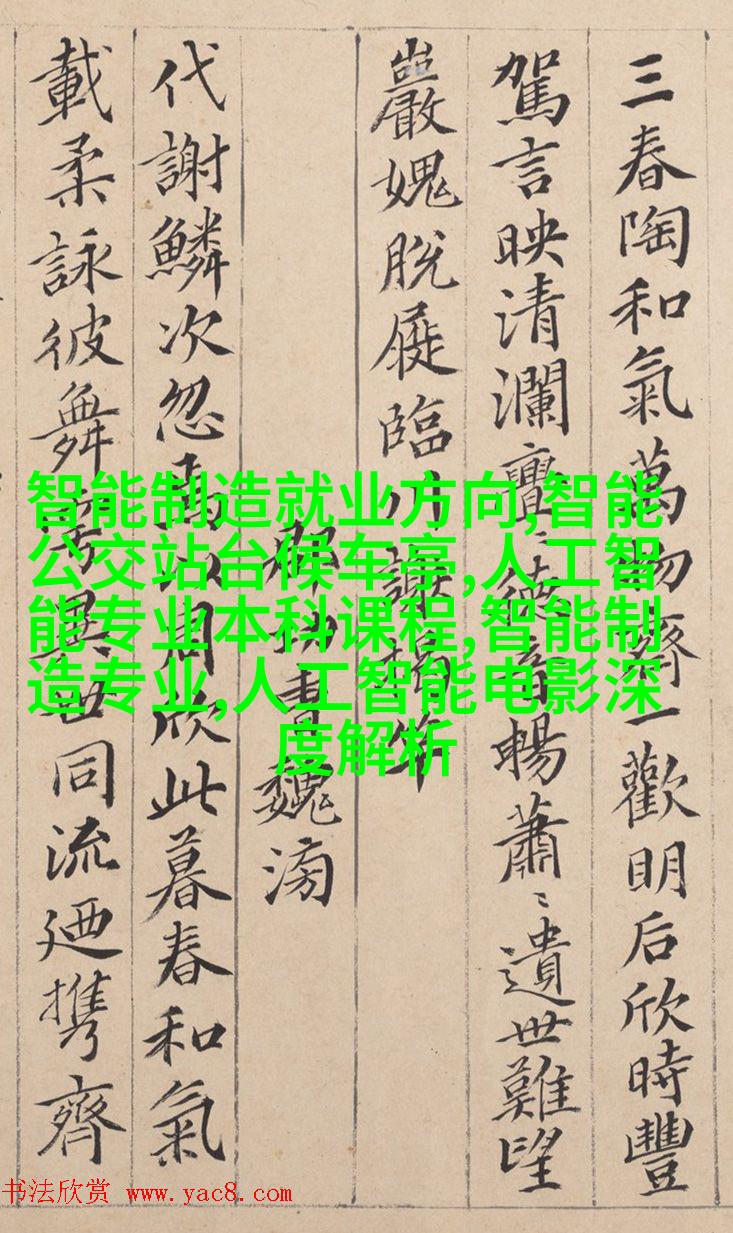 三春陶和氣萬物齊一歡明后欣時豐
駕言映清瀾亹〻德音暢蕭〻遺世難望
巖愧脫屣臨川謝揭竿
郡功曹魏滂
代謝鱗次忽焉以周欣此暮春和氣
載柔詠彼舞雩異世同流迺携齊
智能制造就业方向,智能
公交站台候车亭,人工智
能专业本科课程,智能制
造专业,人工智能电影深
度解析
书法欣赏 www.yac8.com